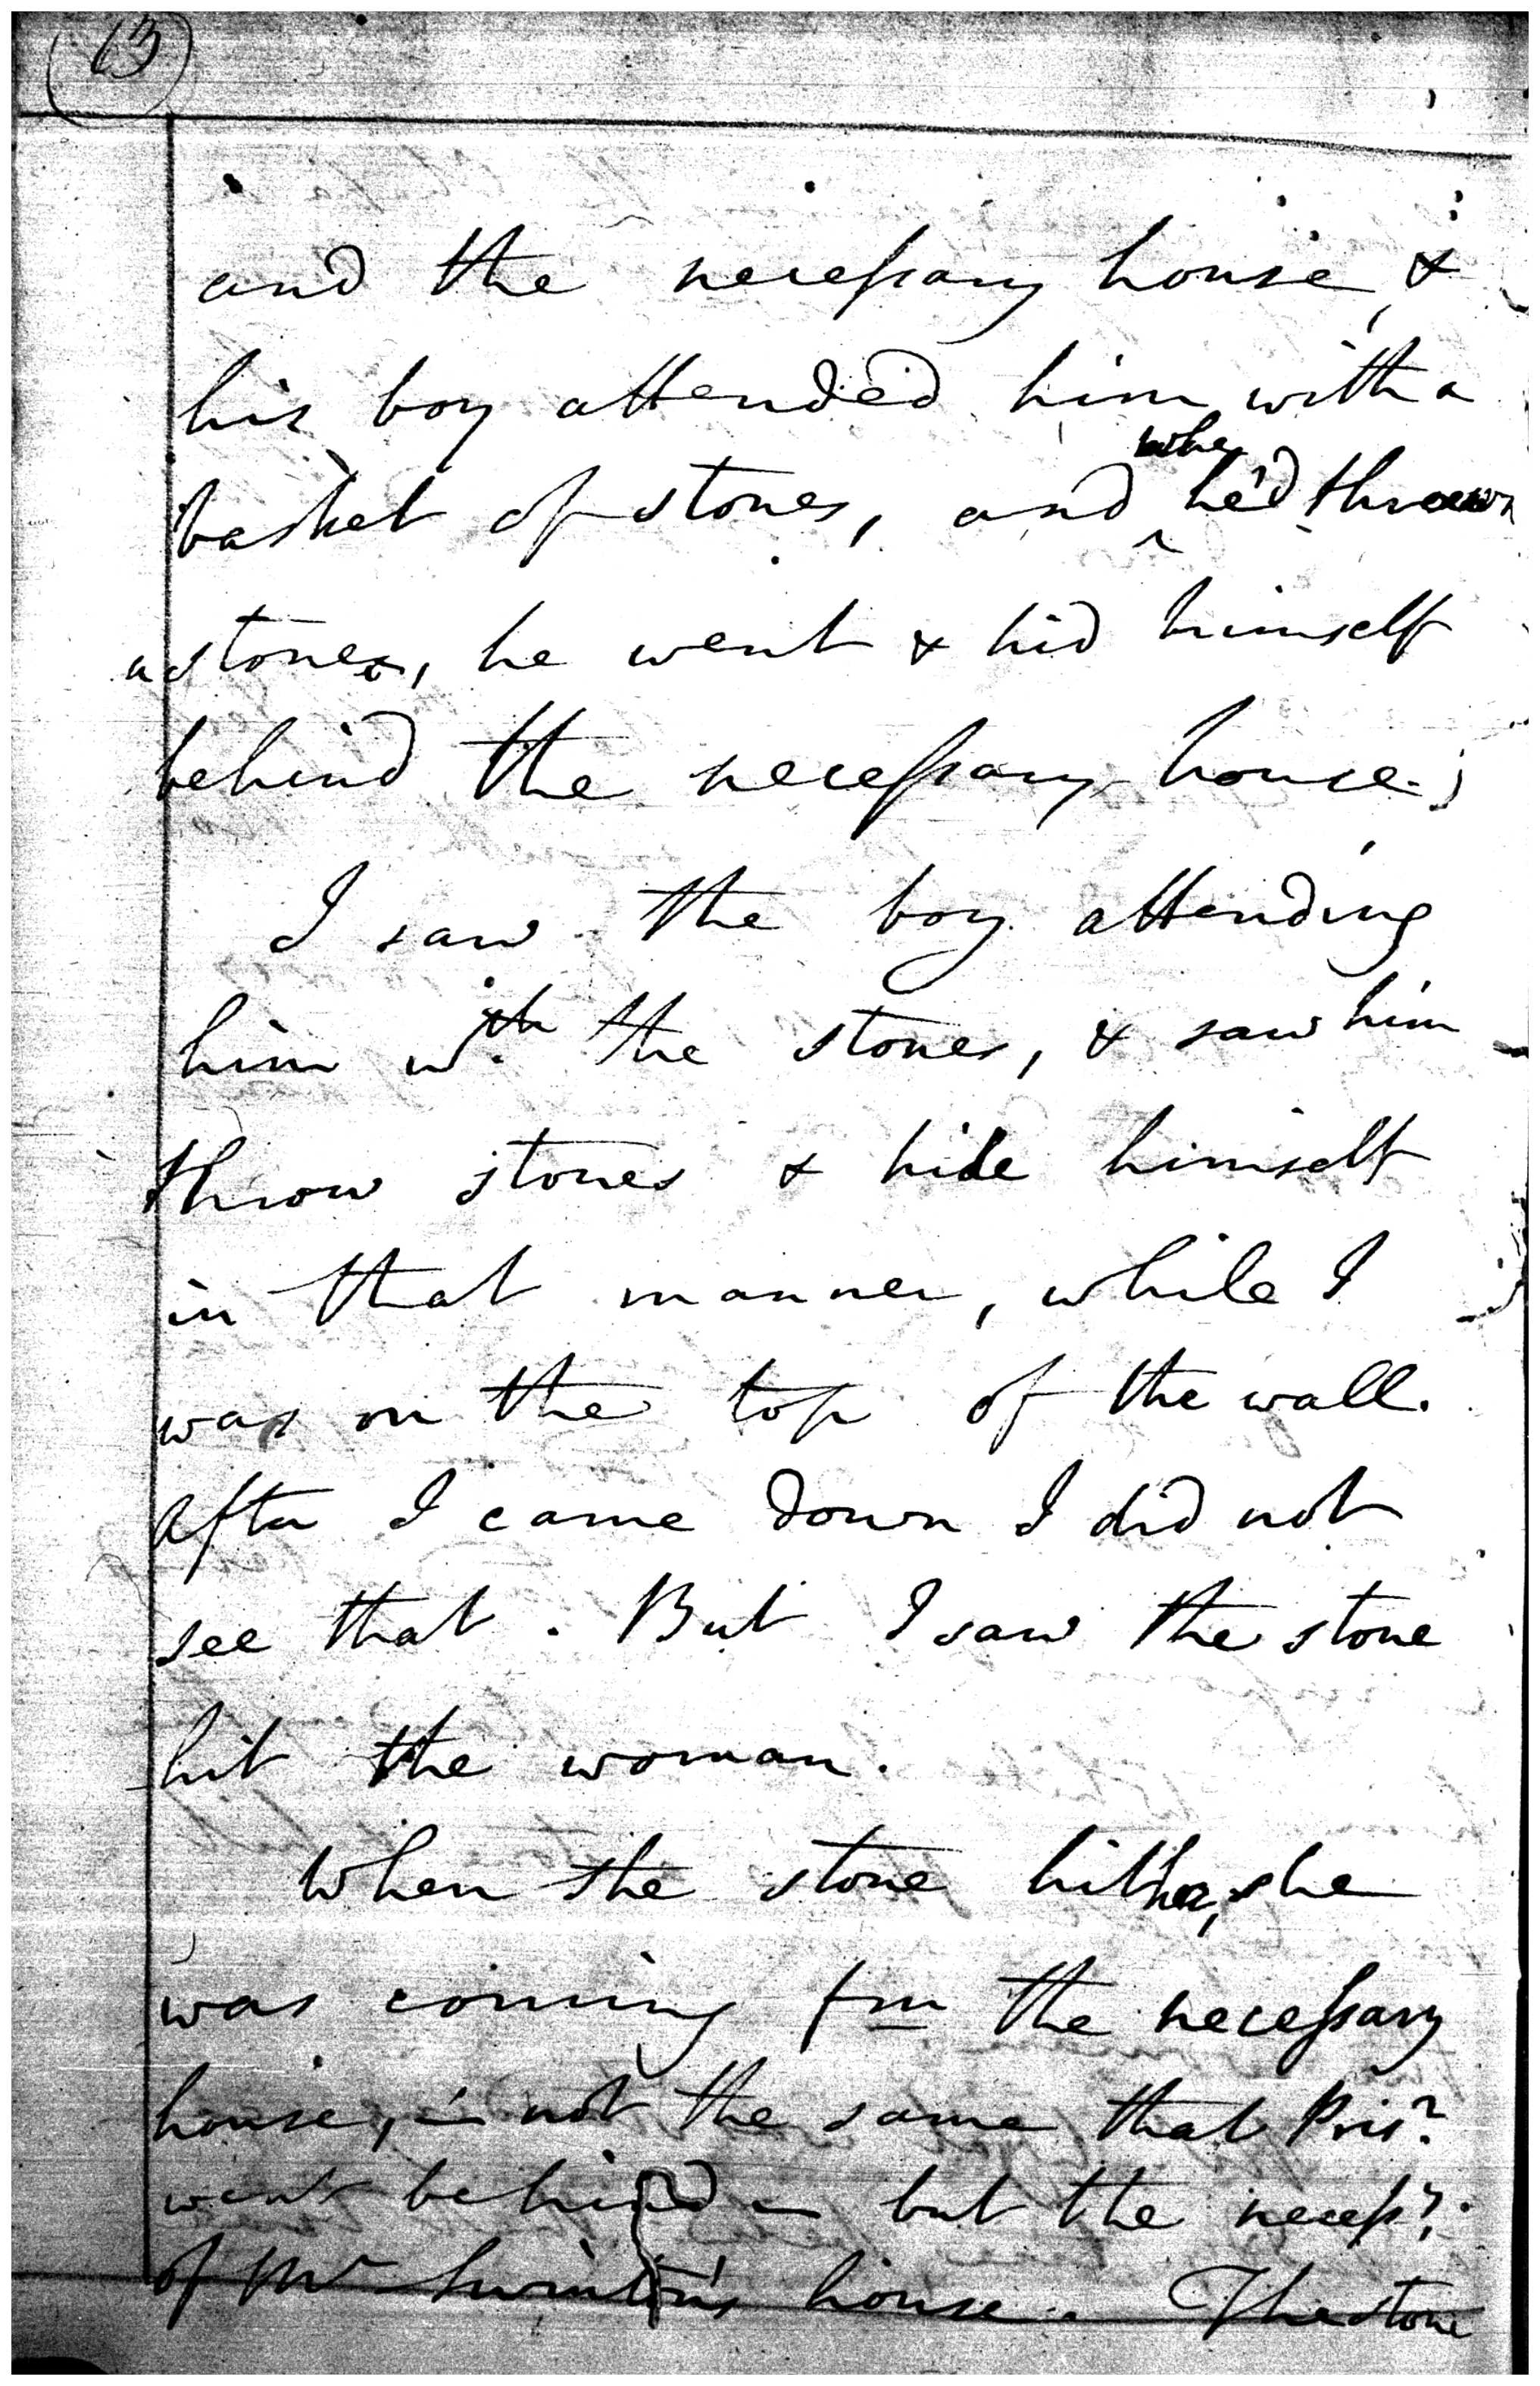 13
and the necessary house, &
his boy attended him with a
basket of stones, and when he'd thrown
a stone, he went & hid himself
behind the necessary house;
I saw the boy attending
him wth the stones, & saw him
throw stones & hide himself
in that manner, while I
was on the top of the wall.
After I came down I did not
see that. But I saw the stone
hit the woman.
When the stone hit her, she
was coming fm the necessary
house, – not the same that Prisr
went behind – but the necessy
of Mr Swinton's house. The stone